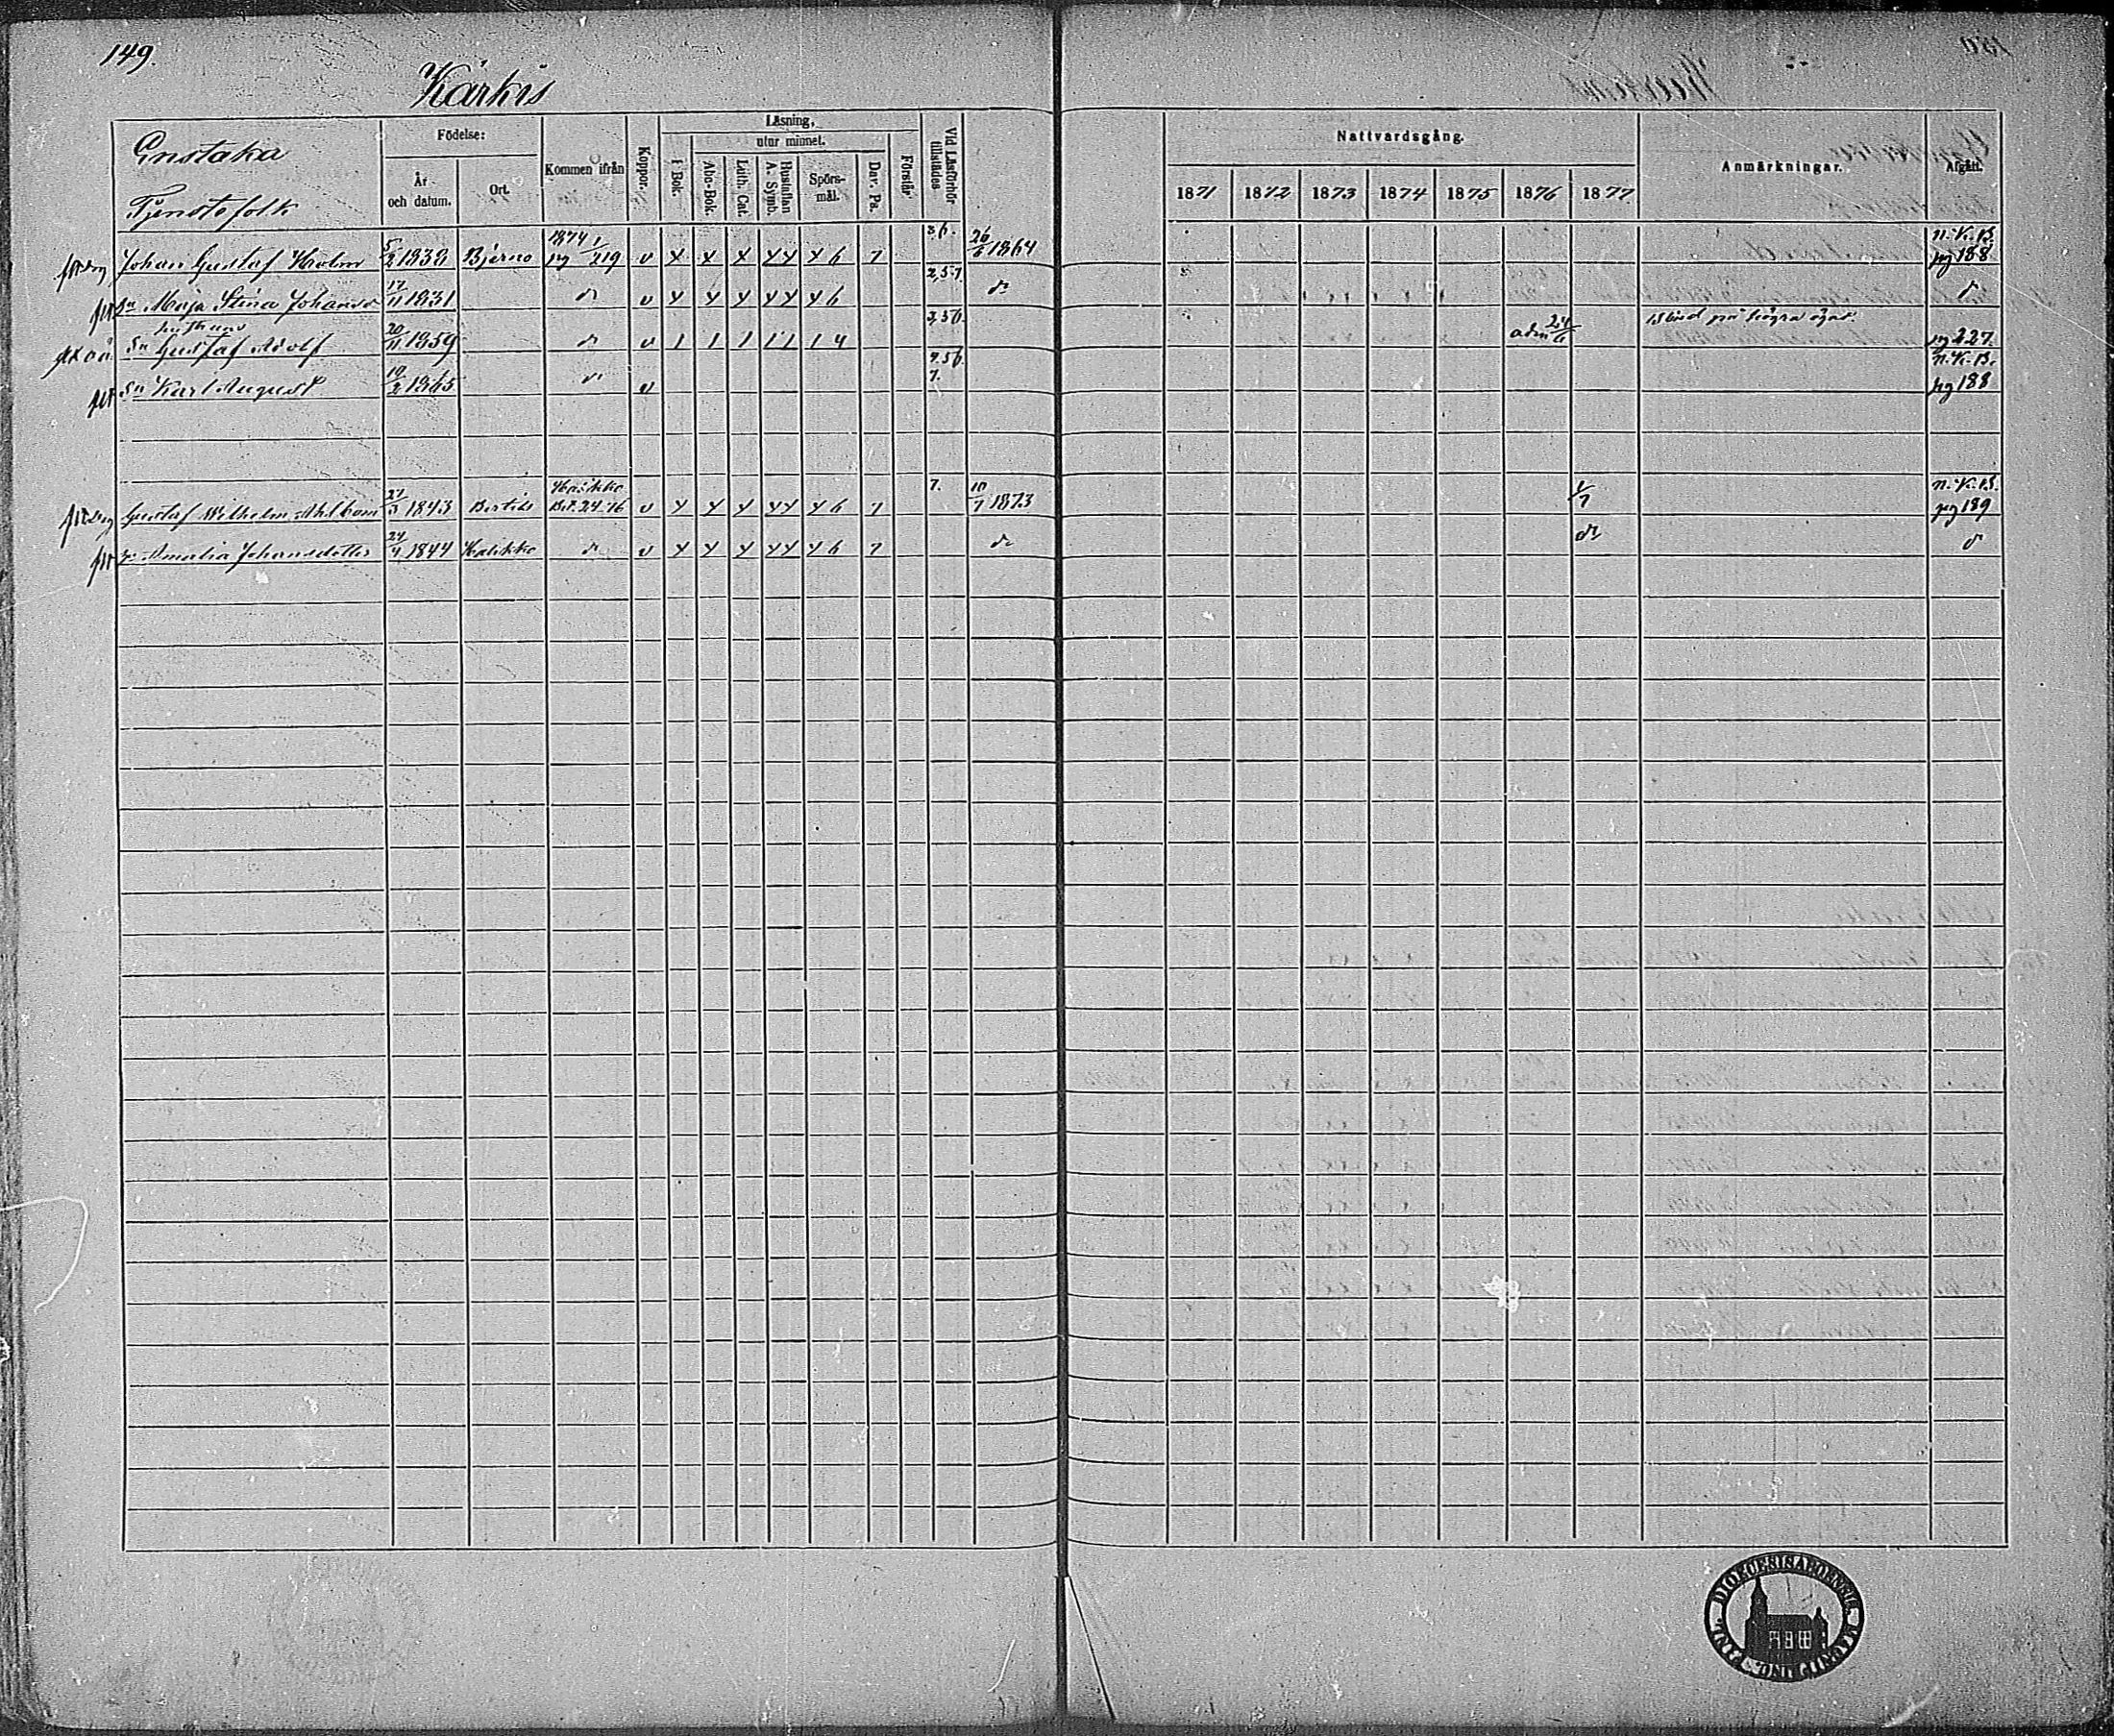 149.
Kärkis
Enstaka
Tjenstefolk
Födelse:
År och datum.
Ort.
Kommen ifrån
Koppor.
Läsning,
utur minnet.
I Bok.
Abc-Bok.
Luth. Cat.
Hustaflan A. Symb.
Spörs-mål.
Dav. Ps.
Förstår
Vid Läsförhör tillstädes
Nattvardsgång.
1871 1872 1873 1874 1875 1876 1877
Anmärkningar.
Afgått.
Johan Gustaf Holm 5/2 1838 Bjerno 1874 pg 219 v x x x x x x 6 7 3,6. 26/6 1864 n.K.B. pg 188
Maja Stina 17/11 1831 do v x x x x x x 6 2,5.7. do do
Sn Gustaf Adolf 20/11 1859 do v 1 1 1 1 1 1 4 2,5 6. adm 24/6 Blind på högra ögat. pg 227.
Sn Karl August 19/2 1865 do v 4.5 6. 7. n.K.B. pg 188
Gustaf Wilhelm Ahlbom 21/3 1843 Bertils Halikko Bet. 24. 76 v x x x x x x 6 7 7. 10/7 1873 1/7 n.K.B. pg 189
Amalia Johansdotter 24/4 1844 Halikko do v x x x x x x 6 7 do do do
DIOECESIS ABOENSIS MAGNI DUC. FINL.